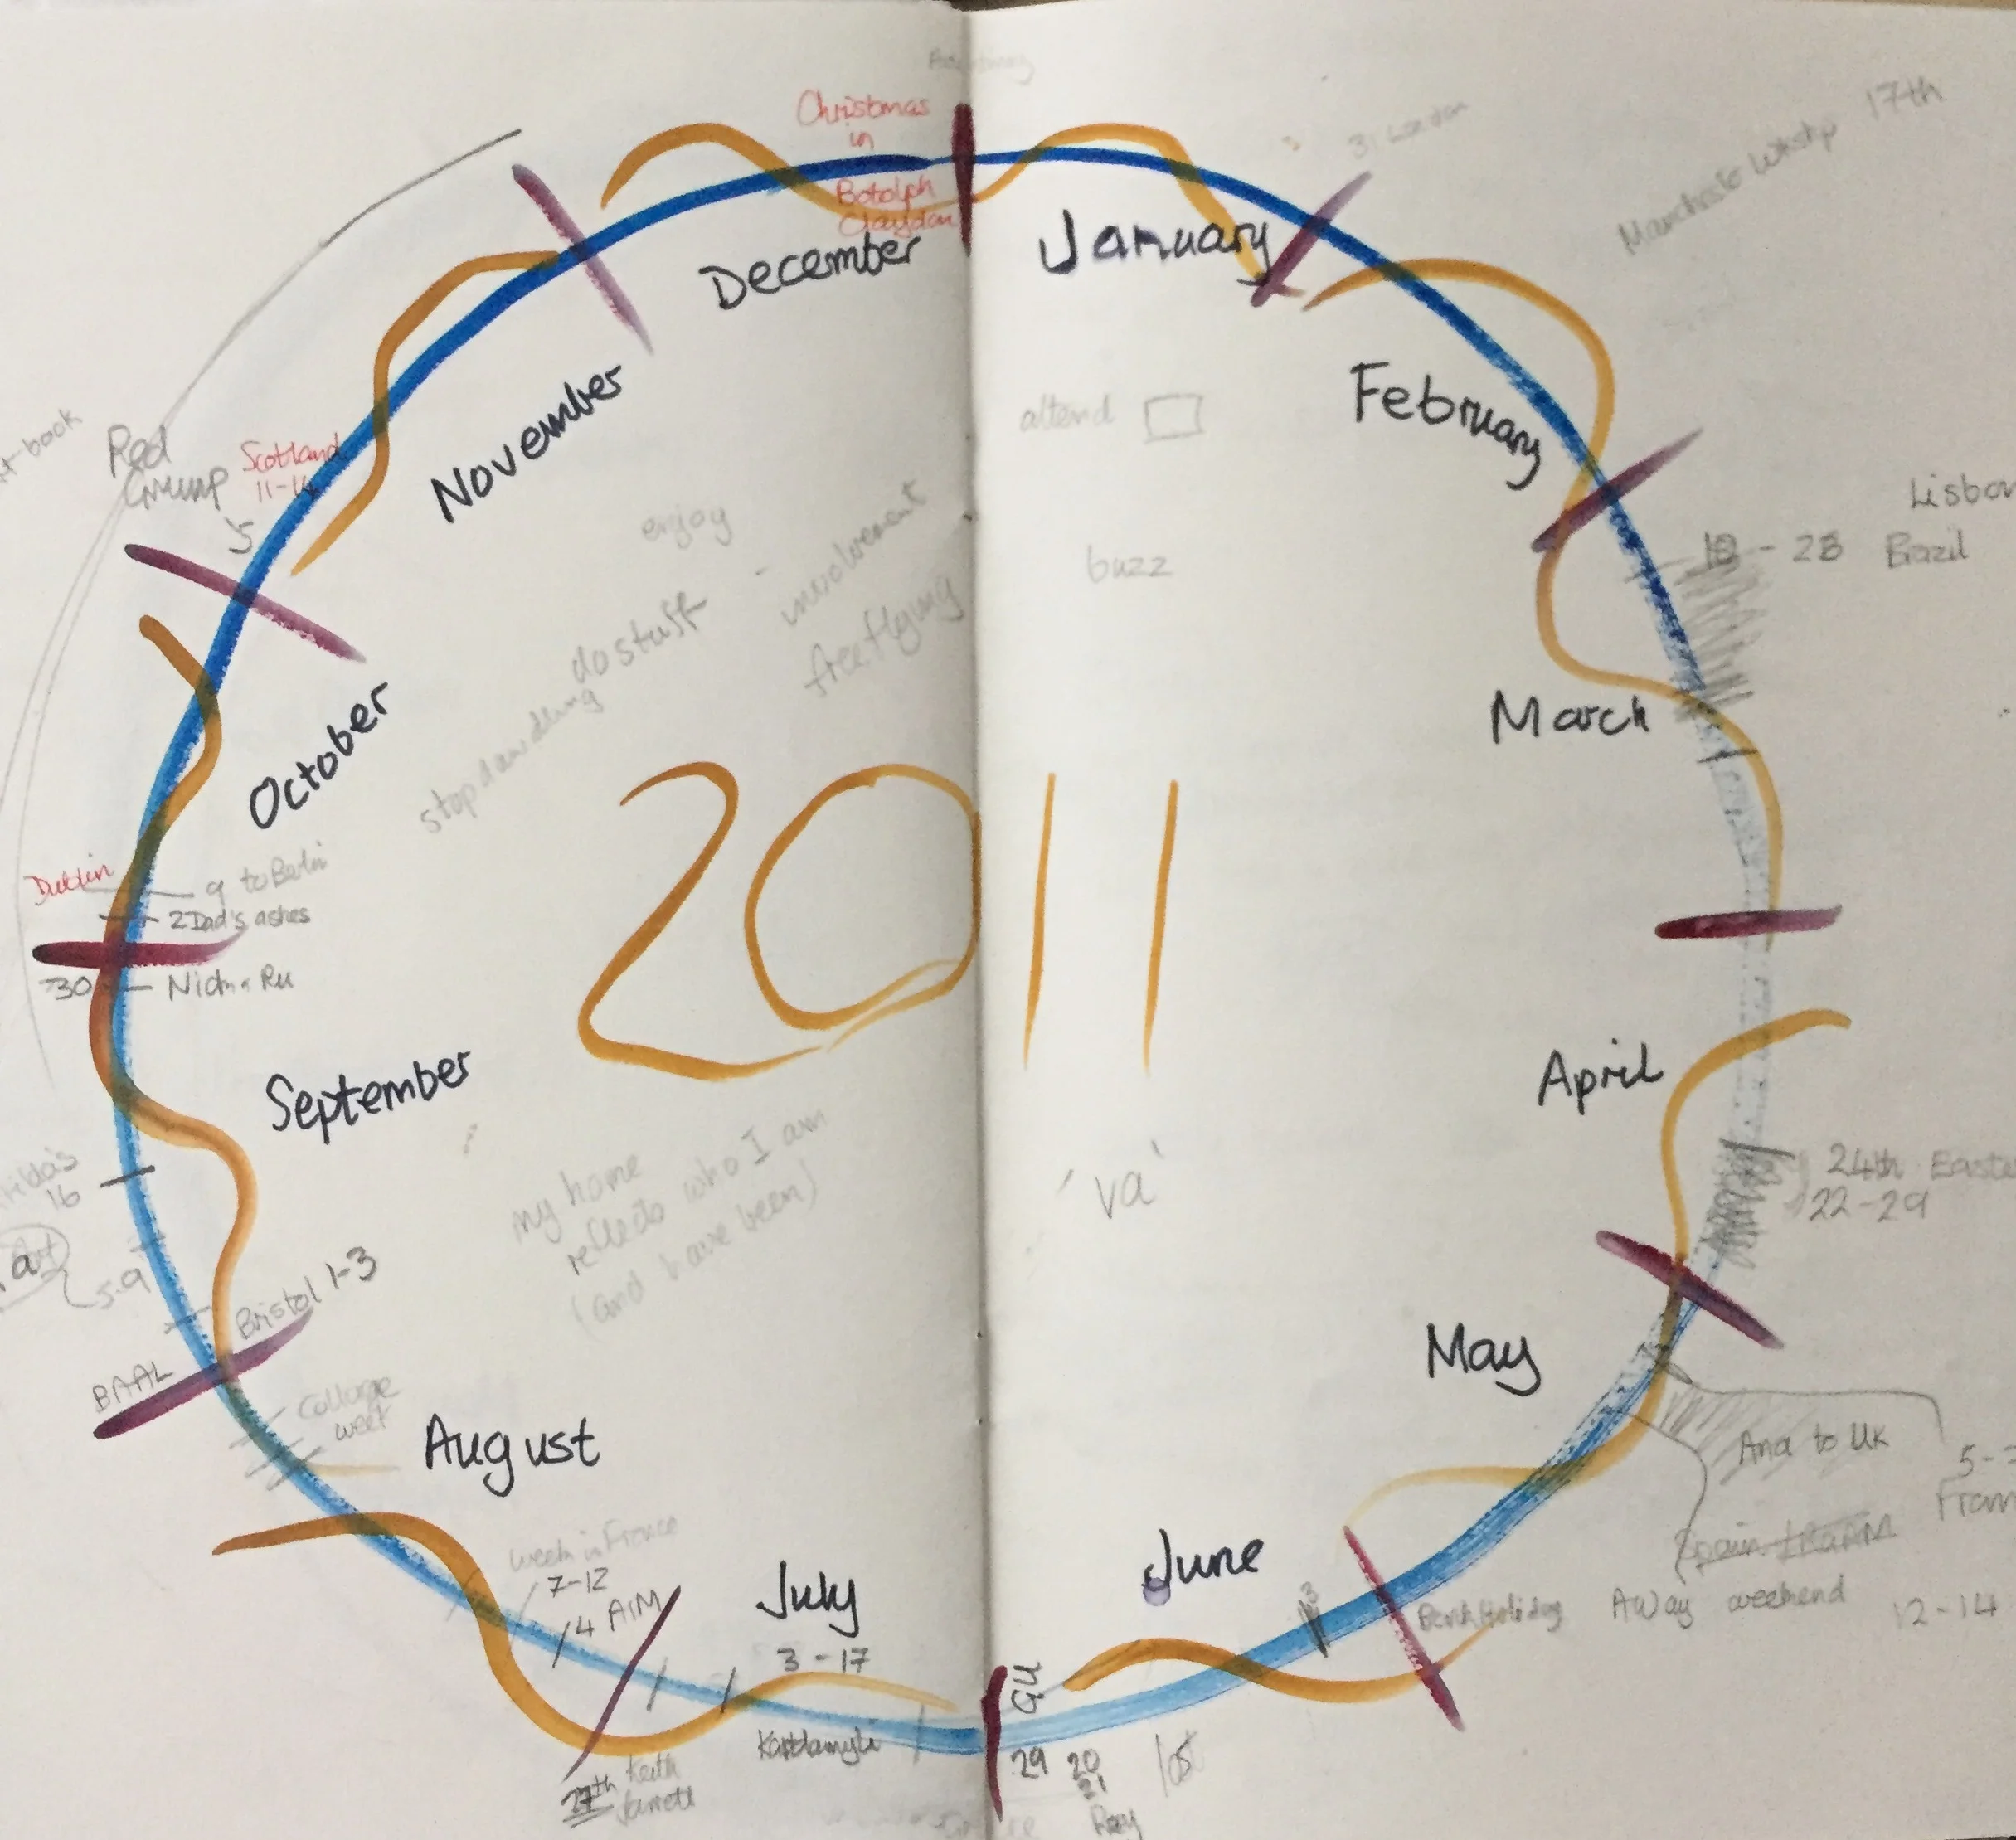 Christmas
in
Botolph
Claydon
December
January
31 London
Manchester Wkshp 17th
February
attend
buzz
Lisbon
- 28 Brazil
March
April
24th Easter
22-29
May
Ana to UK
Away weekend 12-14
Bank Holiday
June
3
'va'
2011
GU
29
20
21
Ray
July
3-17
Kardamyli
Keith
Jarrett
week in France
7-12
4 AIM
August
College
week
BAAL
Bristol 1-3
5-9
16
September
30
Nick + Ru
2 Dad's ashes
9 to Berlin
Dublin
October
Red
Grump
5
Scotland
11-14
November
enjoy
involvement
free flying
do stuff
stop dawdling
my home
reflects who I am
(and have been)